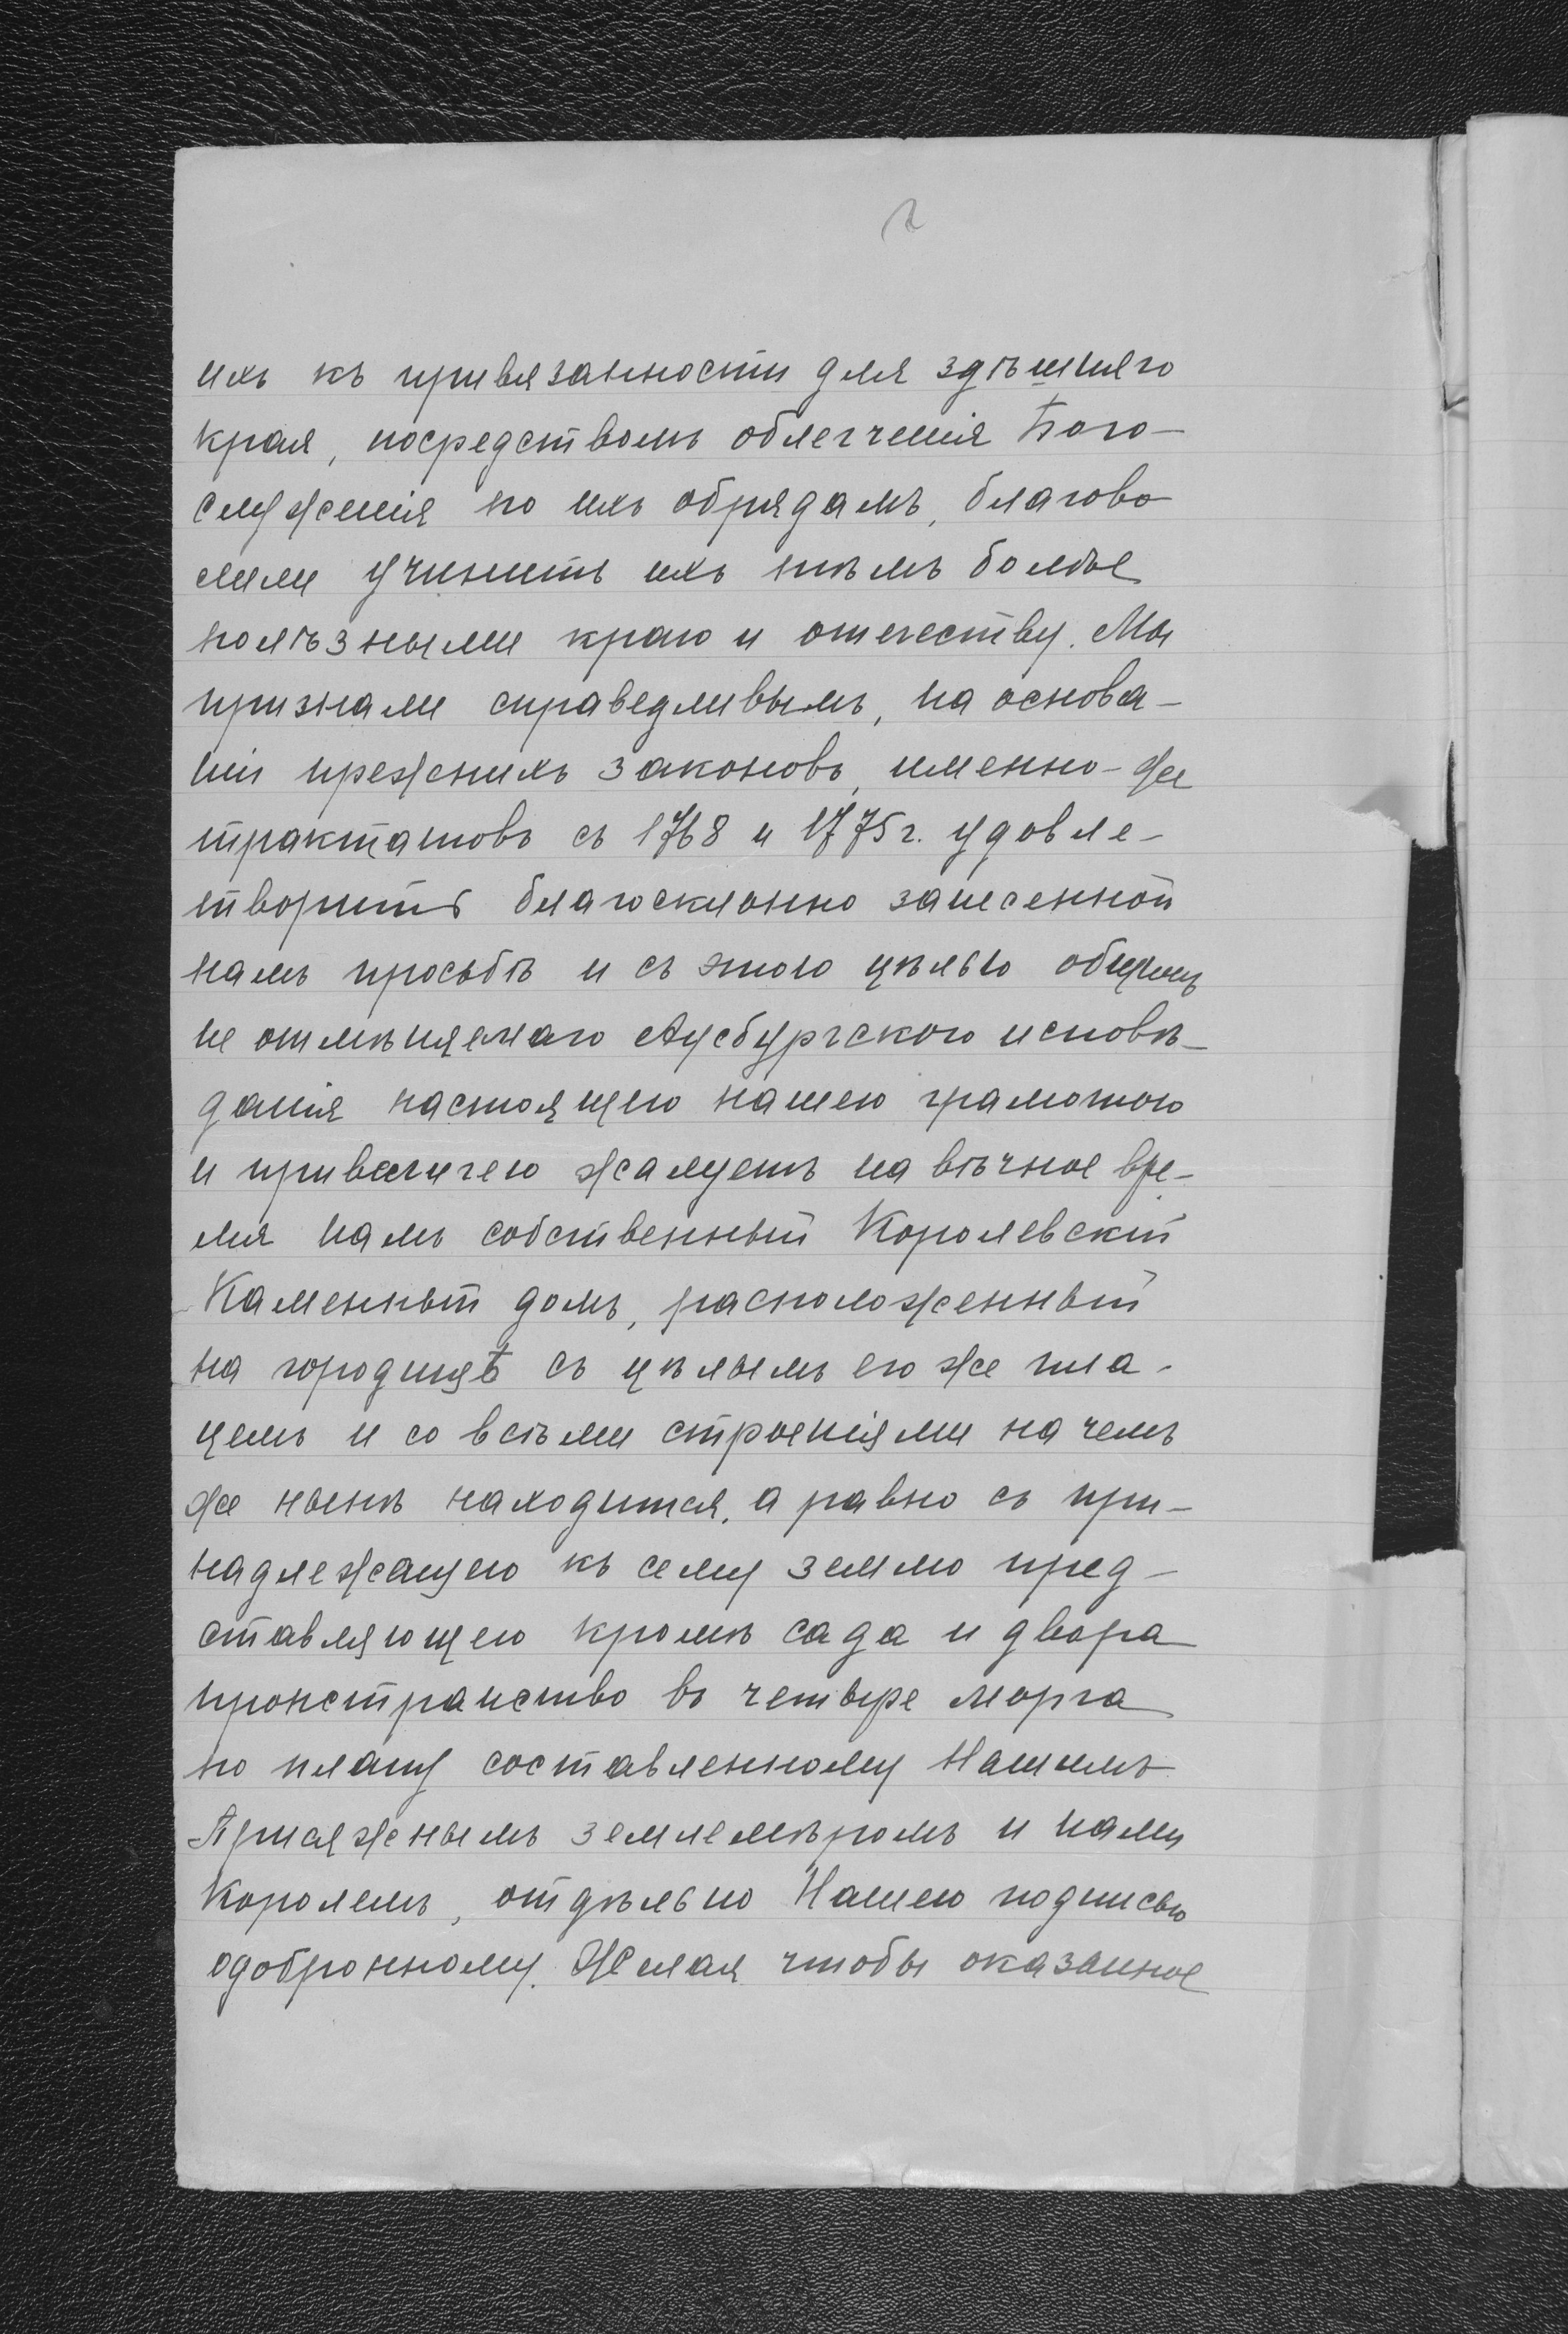 2
ихъ къ привязанности для здѣшняго
края, посредствомъ облегченія Бого-
служенія по ихъ обрядамъ, благово
лили учинить ихъ тѣмъ болѣе
полѣзными краю и отечеству. Мы
признали справедливымъ, на основа-
ніи прежнихъ законовъ, именно-же
трактатовъ съ 1768 и 1775 г. удовле-
творить благосклонно занесенной
намъ просьбѣ и съ этою цѣлью общинѣ
не отмѣняемаго Аусбургскаго исповѣ-
данія настоящею нашею грамотою
и привилигею жалуемъ на вѣчное вре-
мя намъ собственный Королевскій
Каменный домъ, расположенный
на городищѣ съ цѣлымъ его же пла-
цемъ и со всѣми строеніями на чемъ
же нынѣ находится, а равно съ при-
надлежащею къ сему землю пред-
ставляющею кромѣ сада и двора
пронстранство въ четыре морга
по плану составленному Нашимъ
Присяжнымъ землемѣромъ и нами
Королемъ, отдѣльно Нашею подписью
одобронному. Желая чтобы оказанное